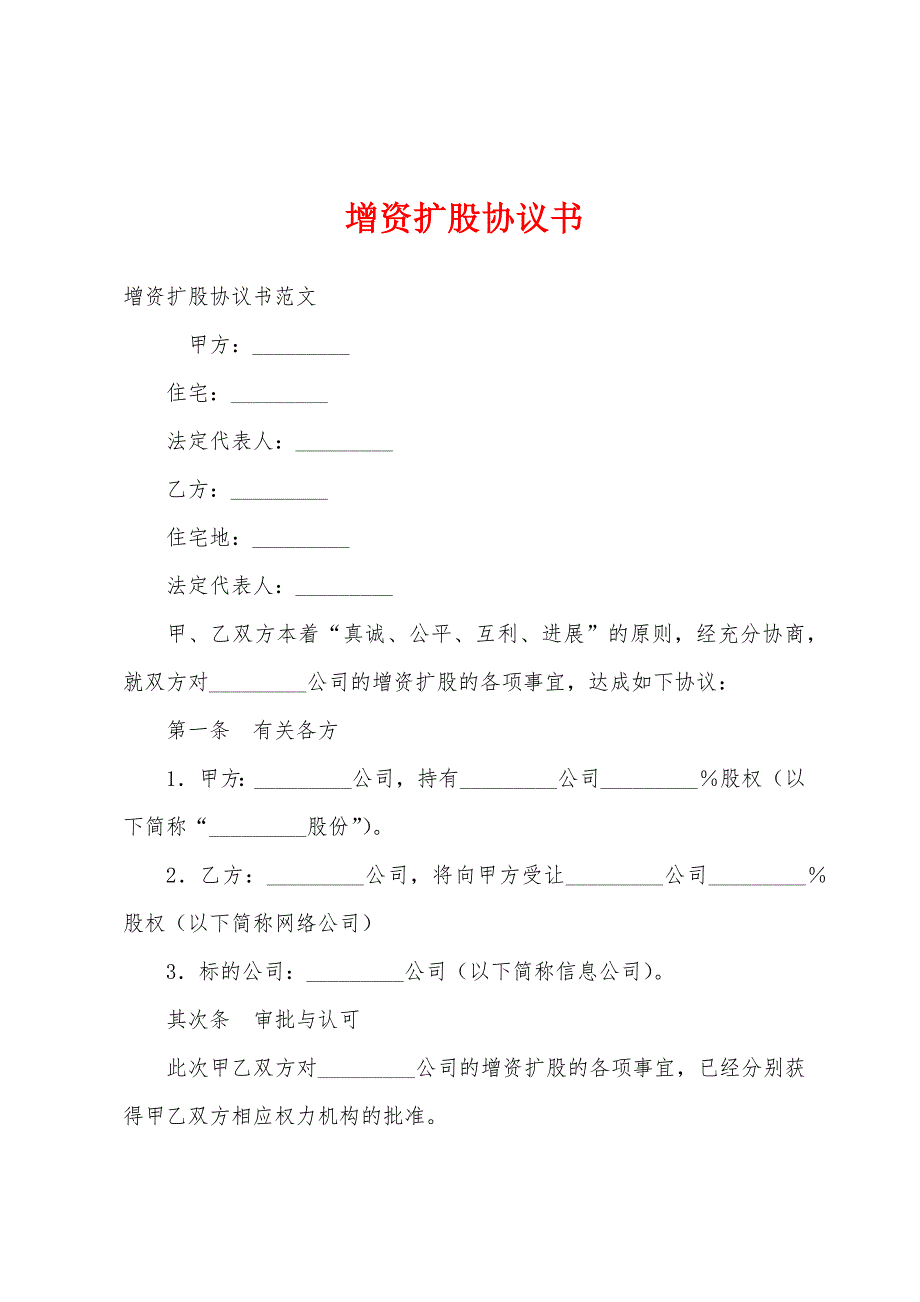 增资扩股协议书
增资扩股协议书范文
甲方：_________
住宅：_________
法定代表人：_________
乙方：_________
住宅地：_________
法定代表人：_________
甲、乙双方本着“真诚、公平、互利、进展”的原则，经充分协商，
就双方对_________公司的增资扩股的各项事宜，达成如下协议：
第一条　有关各方
1．甲方：_________公司，持有_________公司_________％股权（以
下简称“_________股份”）。
2．乙方：_________公司，将向甲方受让_________公司_________％
股权（以下简称网络公司）
3．标的公司：_________公司（以下简称信息公司）。
其次条　审批与认可
此次甲乙双方对_________公司的增资扩股的各项事宜，已经分别获
得甲乙双方相应权力机构的批准。